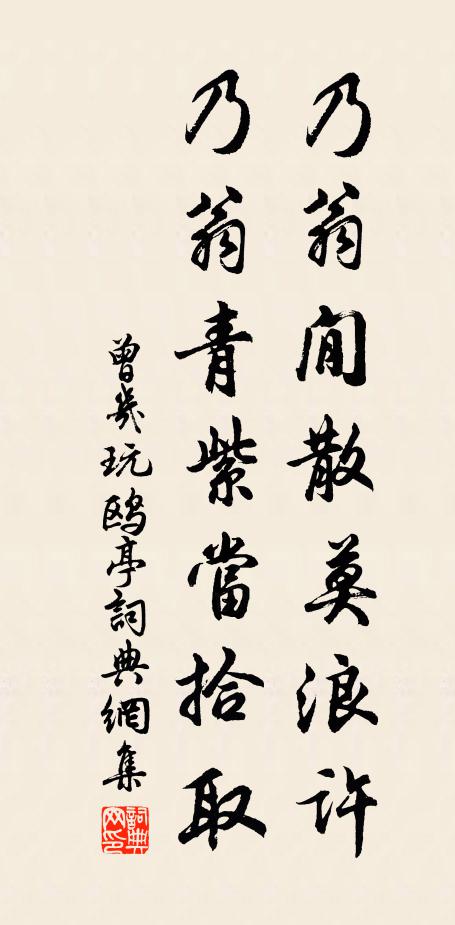 乃翁閒散莫浪許
乃翁青紫當拾取
曾幾玩鷗亭詞典網集
詞典網印